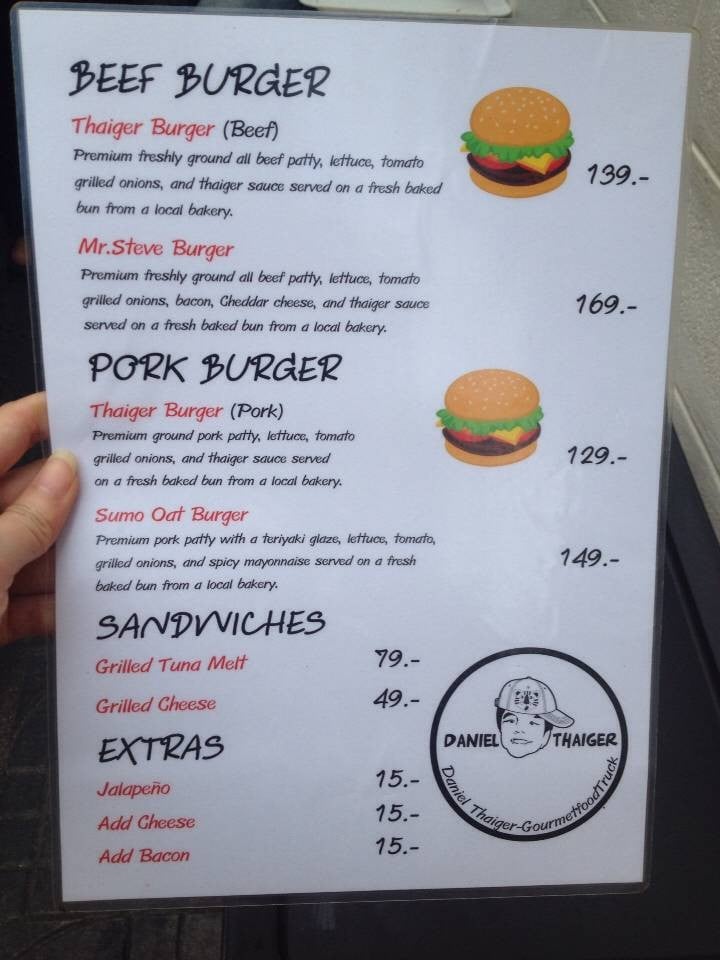 BEEF BURGER
Thaiger Burger (Beef)
Premium freshly ground all beef patty, lettuce, tomato
grilled onions, and thaiger sauce served on a fresh baked
bun from a local bakery.
139.-
Mr.Steve Burger
Premium freshly ground all beef patty, lettuce, tomato
grilled onions, bacon, Cheddar cheese, and thaiger sauce
served on a fresh baked bun from a local bakery.
169.-
PORK BURGER
Thaiger Burger (Pork)
Premium ground pork patty, lettuce, tomato
grilled onions, and thaiger sauce served
on a fresh baked bun from a local bakery.
129.-
Sumo Oat Burger
Premium pork patty with a teriyaki glaze, lettuce, tomato,
grilled onions, and spicy mayonnaise served on a fresh
baked bun from a local bakery.
149.-
SANDWICHES
Grilled Tuna Melt 79.-
Grilled Cheese 49.-
EXTRAS
Jalapeño 15.-
Add Cheese 15.-
Add Bacon 15.-
DANIEL THAIGER
Daniel Thaiger-GourmetfoodTruck